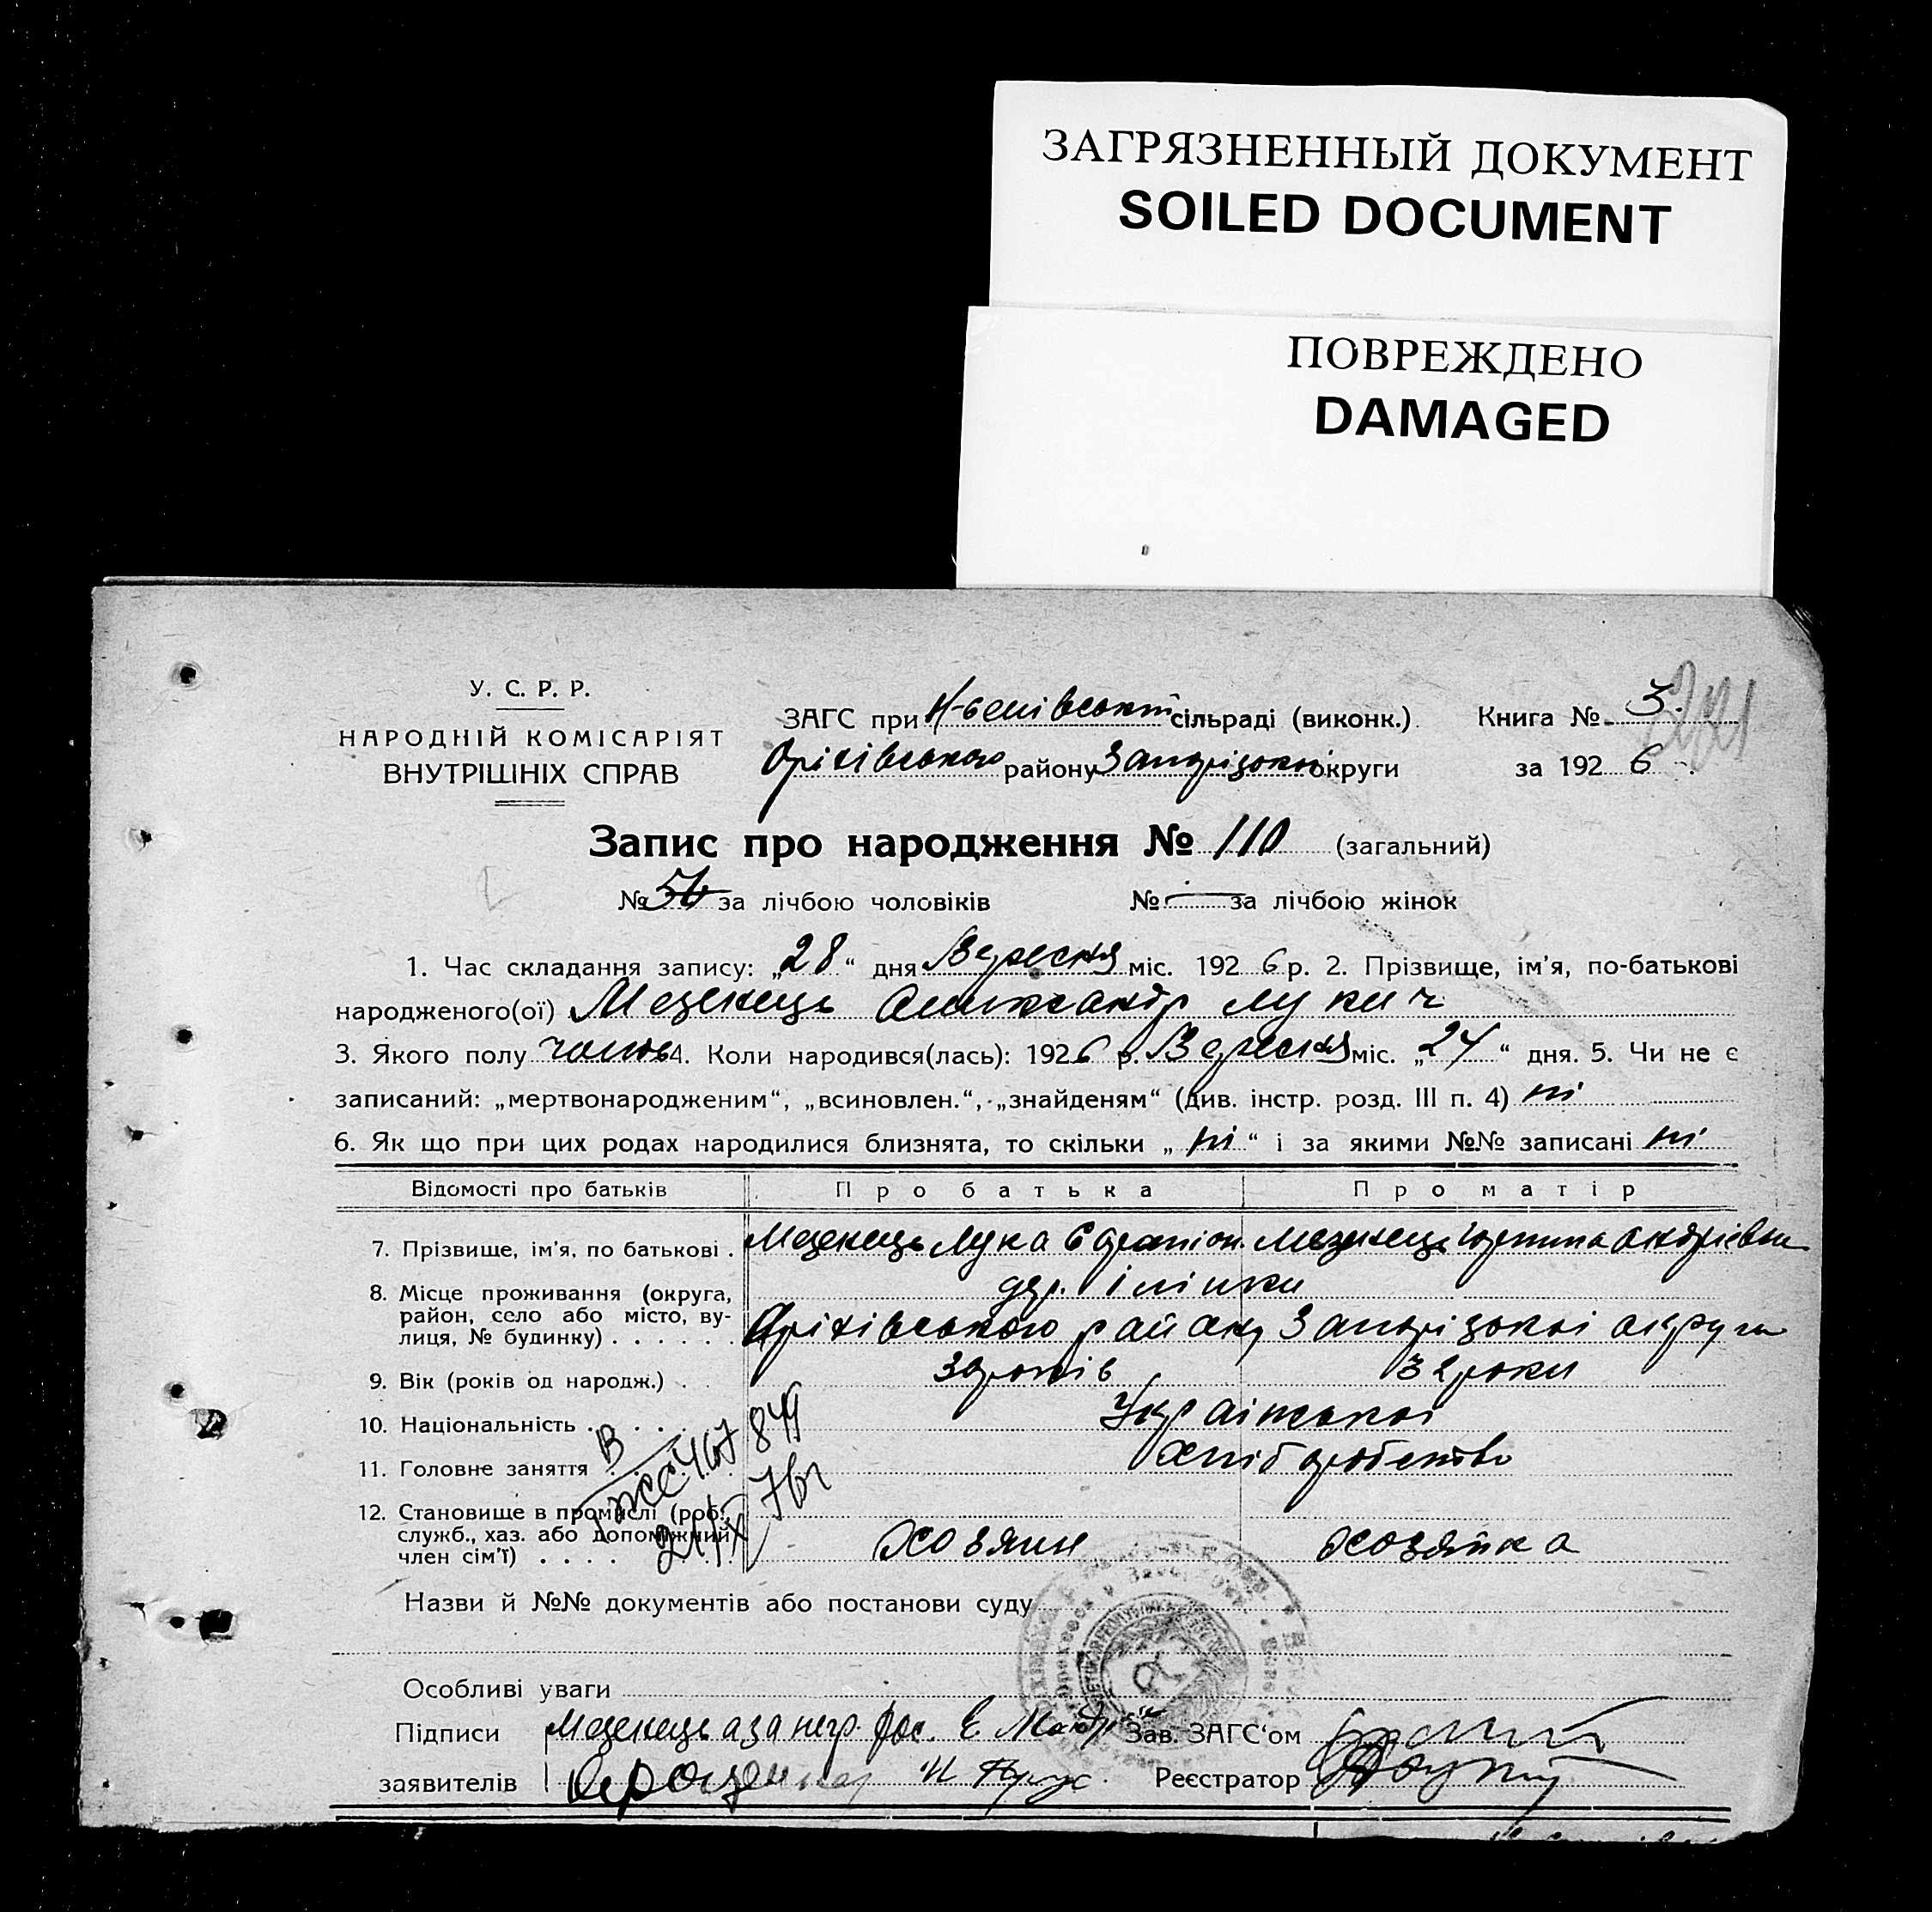 ЗАГРЯЗНЕННЫЙ ДОКУМЕНТ
SOILED DOCUMENT
ПОВРЕЖДЕНО
DAMAGED
У. С. Р. Р.
НАРОДНІЙ КОМІСАРІЯТ
ВНУТРІШНІХ СПРАВ
ЗАГС при сільраді (виконк.) Книга № 3.
Оріхівського району Запорізької округи за 1926
Запис про народження № 110 (загальний)
№ за лічбою чоловіків № — за лічбою жінок
1. Час складання запису: „28“ дня Вересня міс. 1926 р. 2. Прізвище, ім'я, по-батькові
народженого(ої) Мезенець Олександр Лукич
3. Якого полу чолов 4. Коли народився(лась): 1926 р. Вересня міс. „24“ дня. 5. Чи не є
записаний: „мертвонародженим“, „всиновлен.“, „знайденям“ (див. інстр. розд. III п. 4) ні
6. Як що при цих родах народилися близнята, то скільки „ні“ і за якими №№ записані ні
Відомості про батьків Про батька Про матір
7. Прізвище, ім'я, по батькові . Мезенець Лука Мезенець Андріевна
8. Місце проживання (округа,
район, село або місто, ву-
лиця, № будинку) . . . . . .
Оріхівського району Запорізької округи
9. Вік (років од народж.) . років 32 роки
10. Національність . . . . . Української
11. Головне заняття . . . хліборобство
12. Становище в промислі (роб.,
служб., хаз. або допоміжний
член сім'ї) . . . . хозяин хозяйка
Назви й №№ документів або постанови суду
Особливі уваги
Підписи Мезенець а за негр. рос. Зав. ЗАГС'ом
заявителів Реєстратор